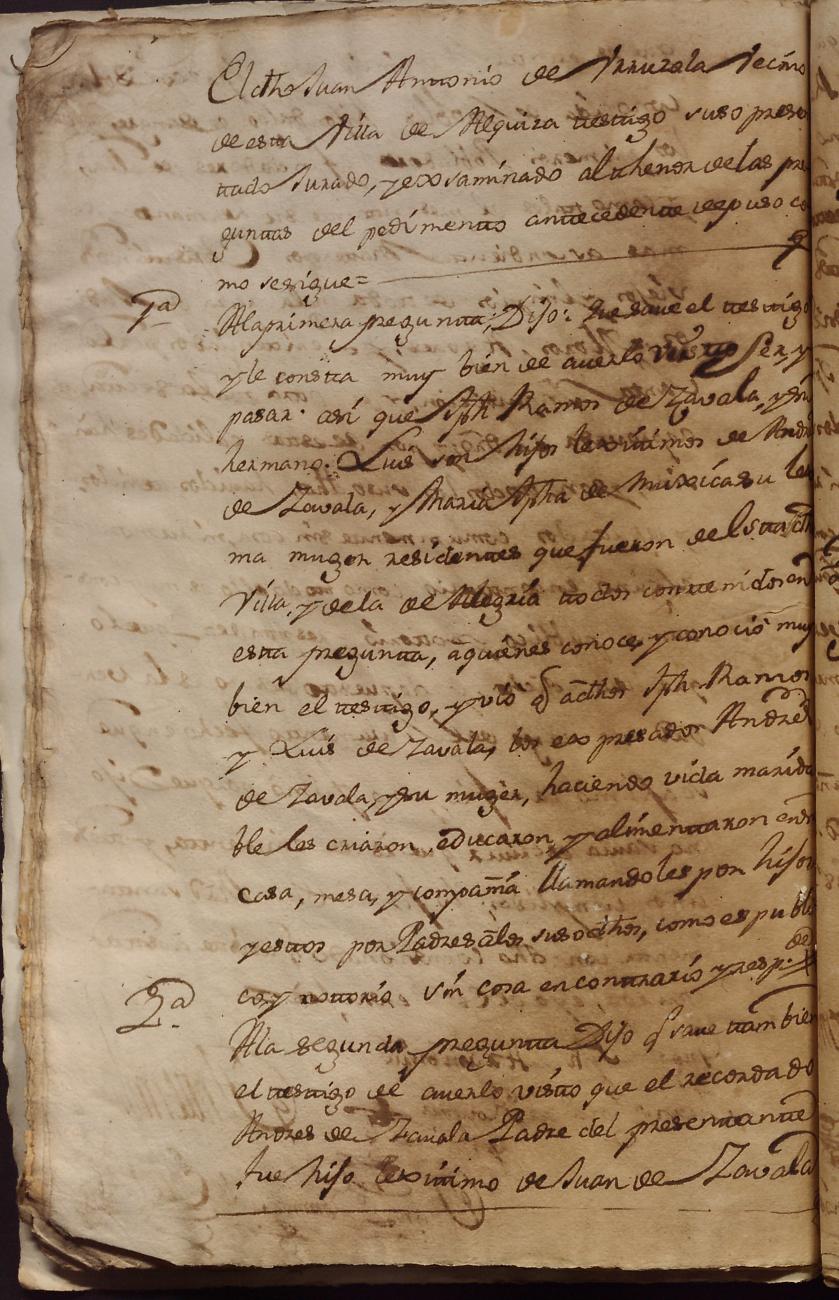 El dho Juan Anttonio de Yrruzola Vecino
de esta Villa de Alquiza testigo suso presen
ttado Jurado, y exsaminado al thenor de las pre
gunttas del pedimentto anttecedentte depuso co
mo se sigue=
1ª
A la primera preguntta, Dijo: que saue el testigo
y le constta muy bien de auerlo visto ser, y
pasar asi que Jph Ramon de Zavala, y su
hermano Luis son hijos lexittimos de Andres
de Zavala, y Maria Jpha de Muxica su lexitti
ma muger residenttes que fueron de esta dha
Villa, y de la de Alegria ttodos conttenidos en
estta preguntta, a quienes conoce, y conocio muy
bien el testigo, y vio q a dhos Jph Ramon
y Luis de Zavala, los expresados Andres
de Zavala, y su muger, haciendo vida marida
ble les criaron, educaron, y alimenttaron en su
casa, mesa, y compañia llamandoles por hijos
y esttos por Padres a los susodhos, como es publi
co, y nottorio sin cosa en conttrario y resp.de
2ª
A la segunda preguntta Dijo q saue ttambien
el testigo de auerlo visto que el recordado
Andres de Zavala Padre del presenttantte
fue hijo lexittimo de Juan de Zavala